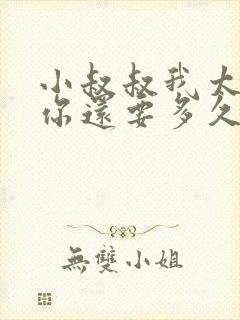 小叔叔我太
你還要多久
無雙小姐